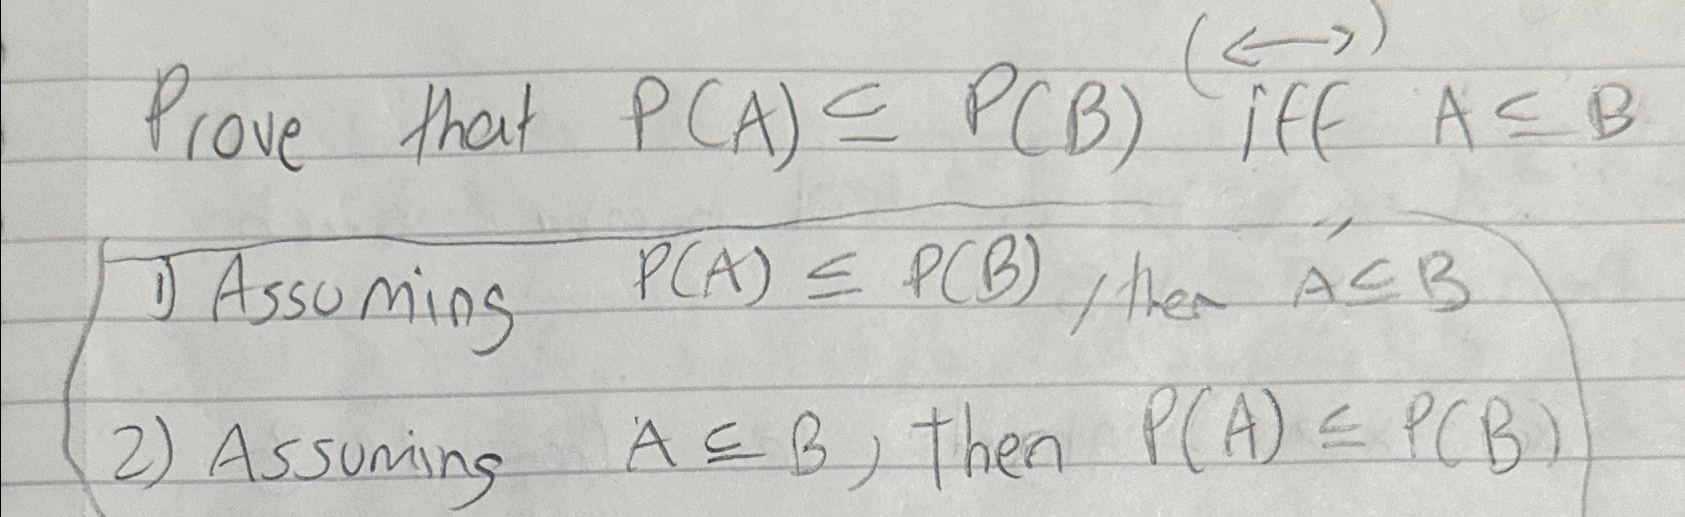 (⟷)
Prove that P(A) ⊆ P(B) iff A ⊆ B
1) Assuming P(A) ⊆ P(B), then A ⊆ B
2) Assuming A ⊆ B, then P(A) ⊆ P(B)